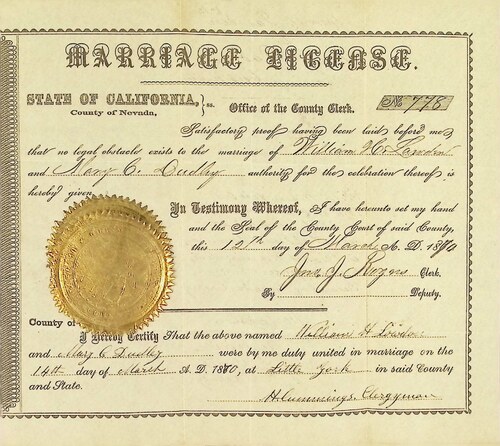 MARRIAGE LICENSE.
STATE OF CALIFORNIA, } ss. Office of the County Clerk. No 778
County of Nevada,
Satisfactory proof having been laid before me
that no legal obstacle exists to the marriage of William H.
and Mary C. Dudley authority for the celebration thereof is
hereby given.
In Testimony Whereof, I have hereunto set my hand
and the Seal of the County Court of said County,
this 12th day of March A. D. 1870
Jno. J. Rogers Clerk.
By Deputy.
County of
I Hereby Certify That the above named William H
and Mary C Dudley were by me duly united in marriage on the
14th day of March A. D. 1870, at Little York in said County
and State.
H. Cummings. Clergyman